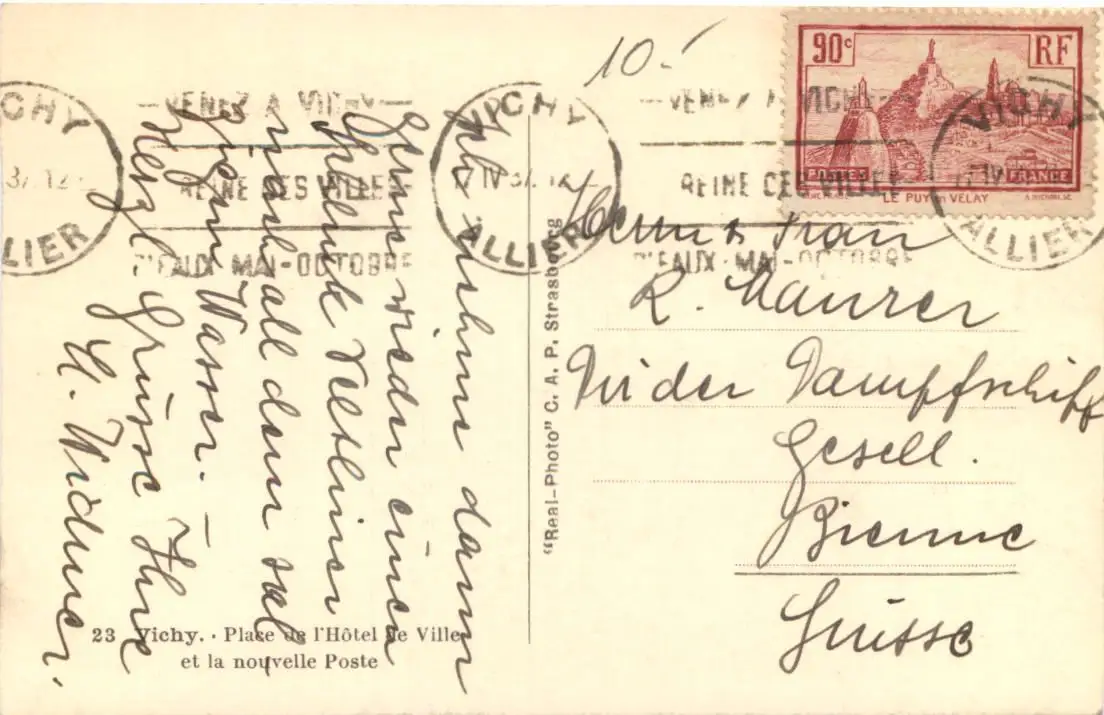 10.-
90c RF
POSTES FRANCE
LE PUY en VELAY
VICHY
ALLIER
VENEZ A VICHY
REINE DES VILLES
D'EAUX MAI-OCTOBRE
VICHY
IV 37
ALLIER
VENEZ A VICHY
REINE DES VILLES
D'EAUX MAI-OCTOBRE
VICHY
ALLIER
Ich nehme dann
gerne wieder einen
Veltliner
nach all dem sal
zigen Wasser. –
Herzl. Grüsse Ihre
H. Widmer.
Herrn & Frau
R. Maurer
der Dampfschiff
Gesell.
Bienne
Suisse
"Real-Photo" C. A. P. Strasbourg
23 Vichy. - Place de l'Hôtel de Ville
et la nouvelle Poste